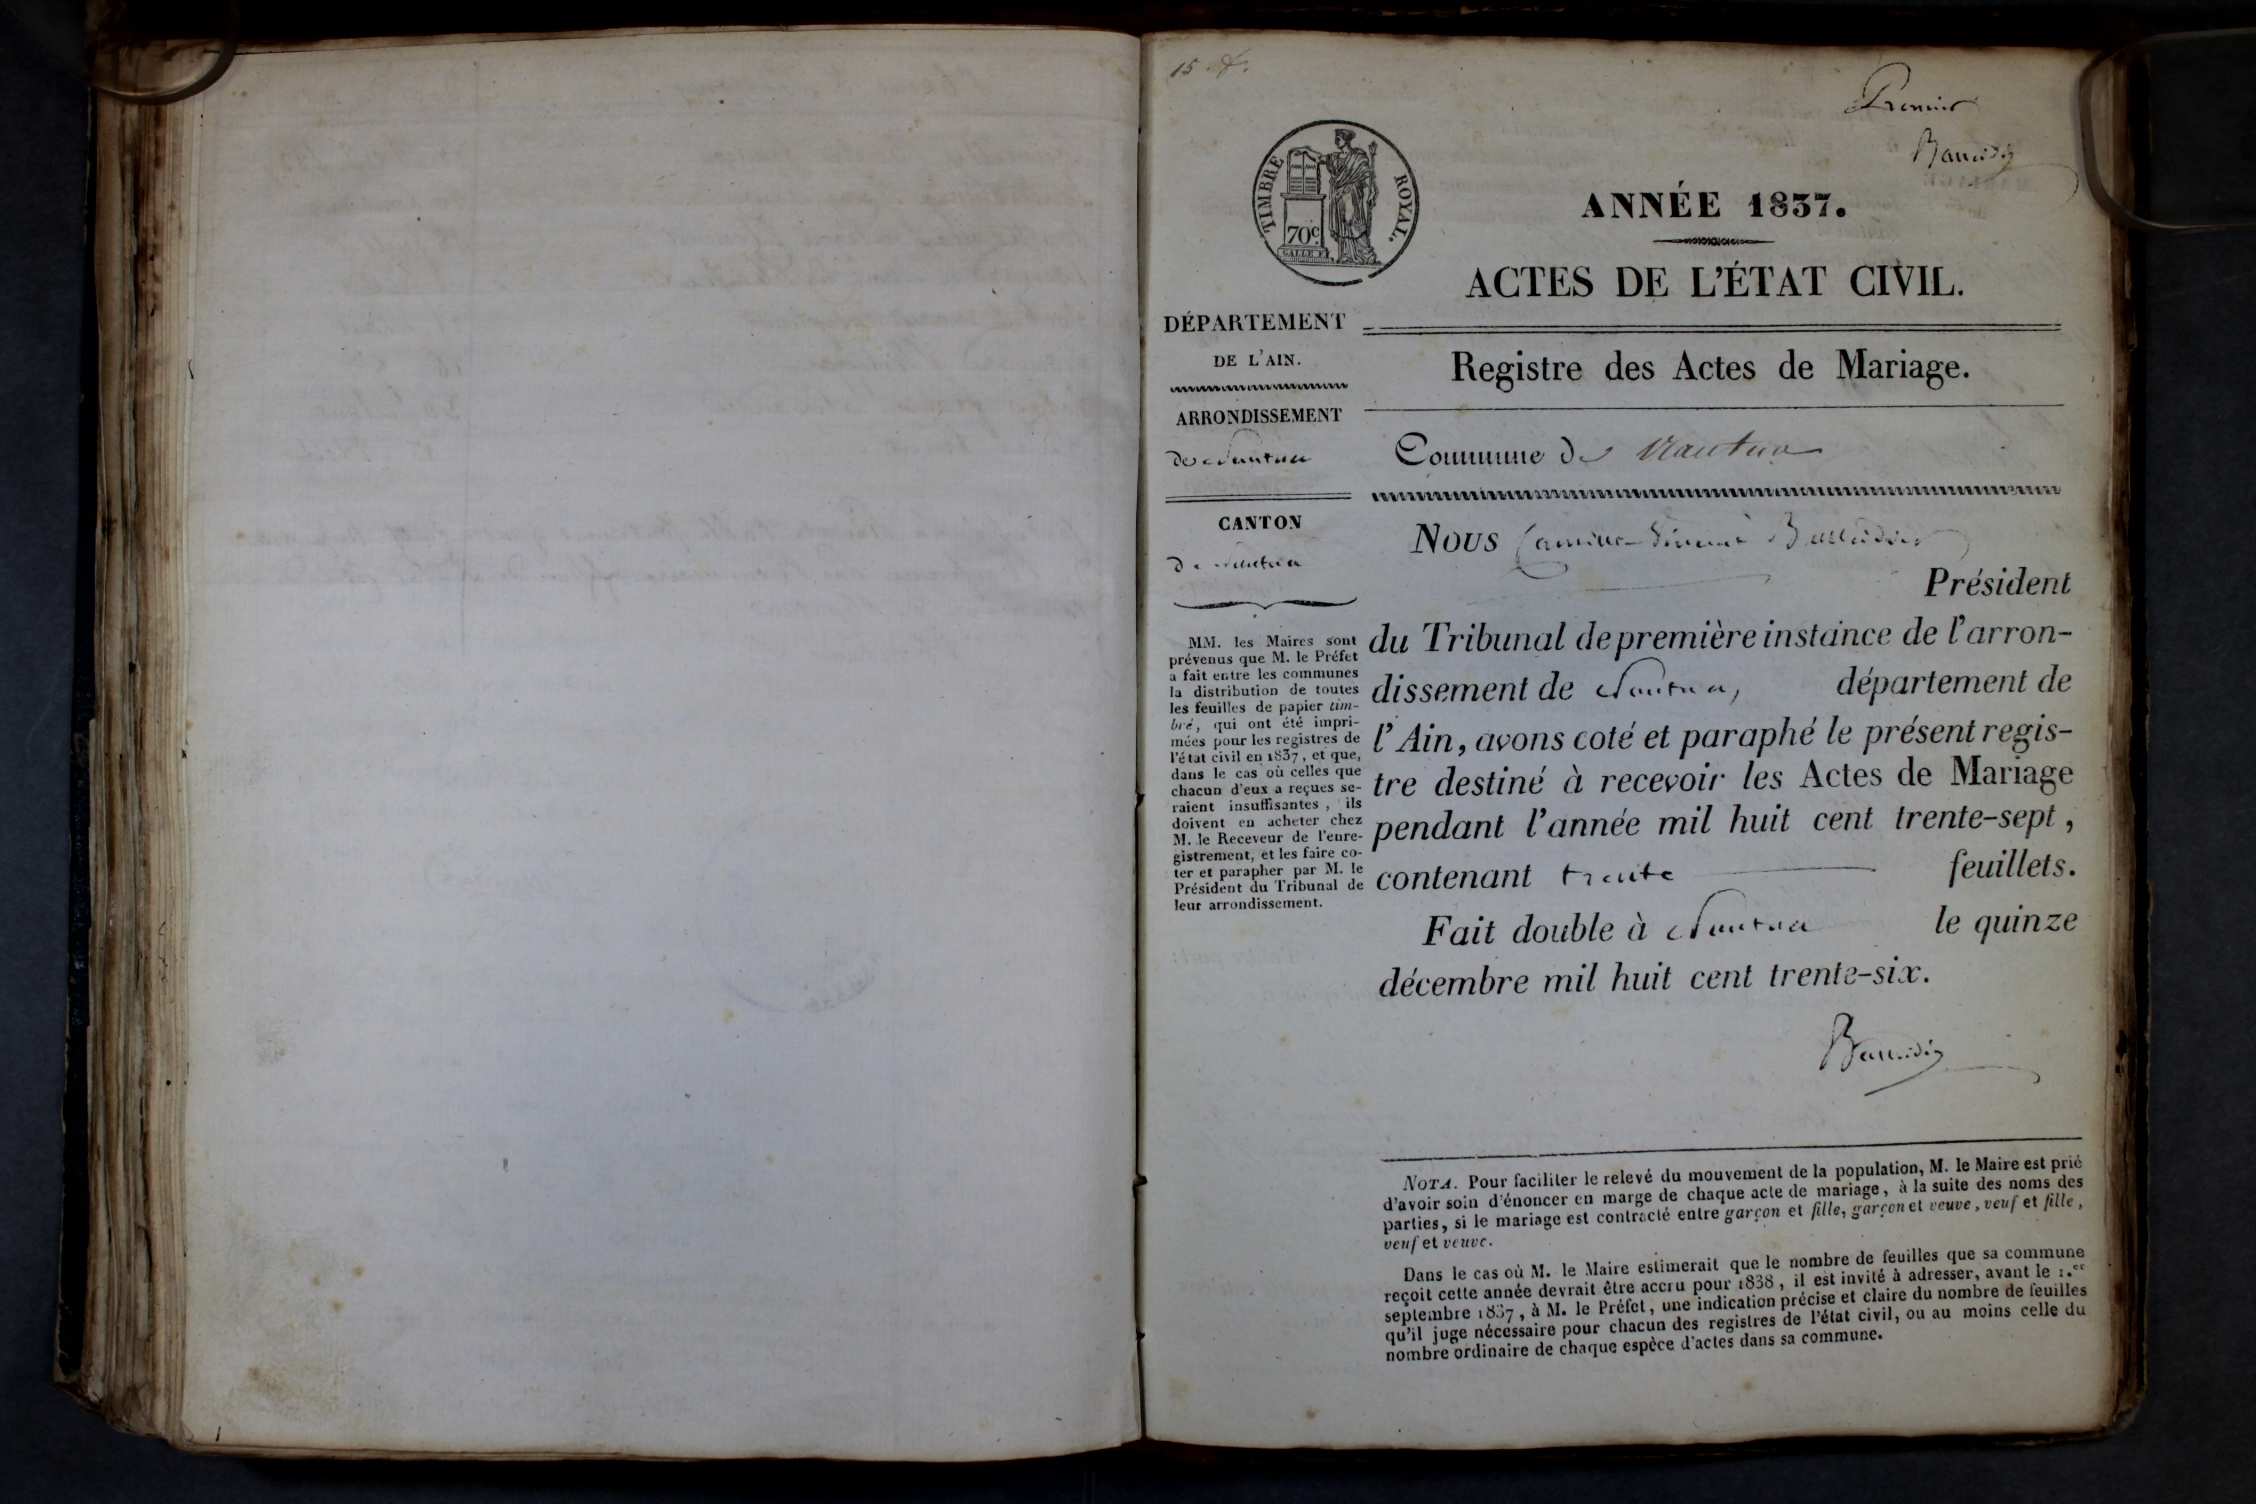 15
Premier
TIMBRE ROYAL.
70c
ANNÉE 1837.
ACTES DE L'ÉTAT CIVIL.
DÉPARTEMENT
DE L'AIN.
ARRONDISSEMENT
de Nantua
CANTON
de Nantua
MM. les Maires sont
prévenus que M. le Préfet
a fait entre les communes
la distribution de toutes
les feuilles de papier tim-
bré, qui ont été impri-
mées pour les registres de
l'état civil en 1837, et que,
dans le cas où celles que
chacun d'eux a reçues se-
raient insuffisantes, ils
doivent en acheter chez
M. le Receveur de l'enre-
gistrement, et les faire co-
ter et parapher par M. le
Président du Tribunal de
leur arrondissement.
Registre des Actes de Mariage.
Commune de Nantua
Nous
Président
du Tribunal de première instance de l'arron-
dissement de Nantua, département de
l'Ain, avons coté et paraphé le présent regis-
tre destiné à recevoir les Actes de Mariage
pendant l'année mil huit cent trente-sept,
contenant trente feuillets.
Fait double à Nantua le quinze
décembre mil huit cent trente-six.
NOTA. Pour faciliter le relevé du mouvement de la population, M. le Maire est prié
d'avoir soin d'énoncer en marge de chaque acte de mariage, à la suite des noms des
parties, si le mariage est contracté entre garçon et fille, garçon et veuve, veuf et fille,
veuf et veuve.
Dans le cas où M. le Maire estimerait que le nombre de feuilles que sa commune
reçoit cette année devrait être accru pour 1838, il est invité à adresser, avant le 1.er
septembre 1837, à M. le Préfet, une indication précise et claire du nombre de feuilles
qu'il juge nécessaire pour chacun des registres de l'état civil, ou au moins celle du
nombre ordinaire de chaque espèce d'actes dans sa commune.